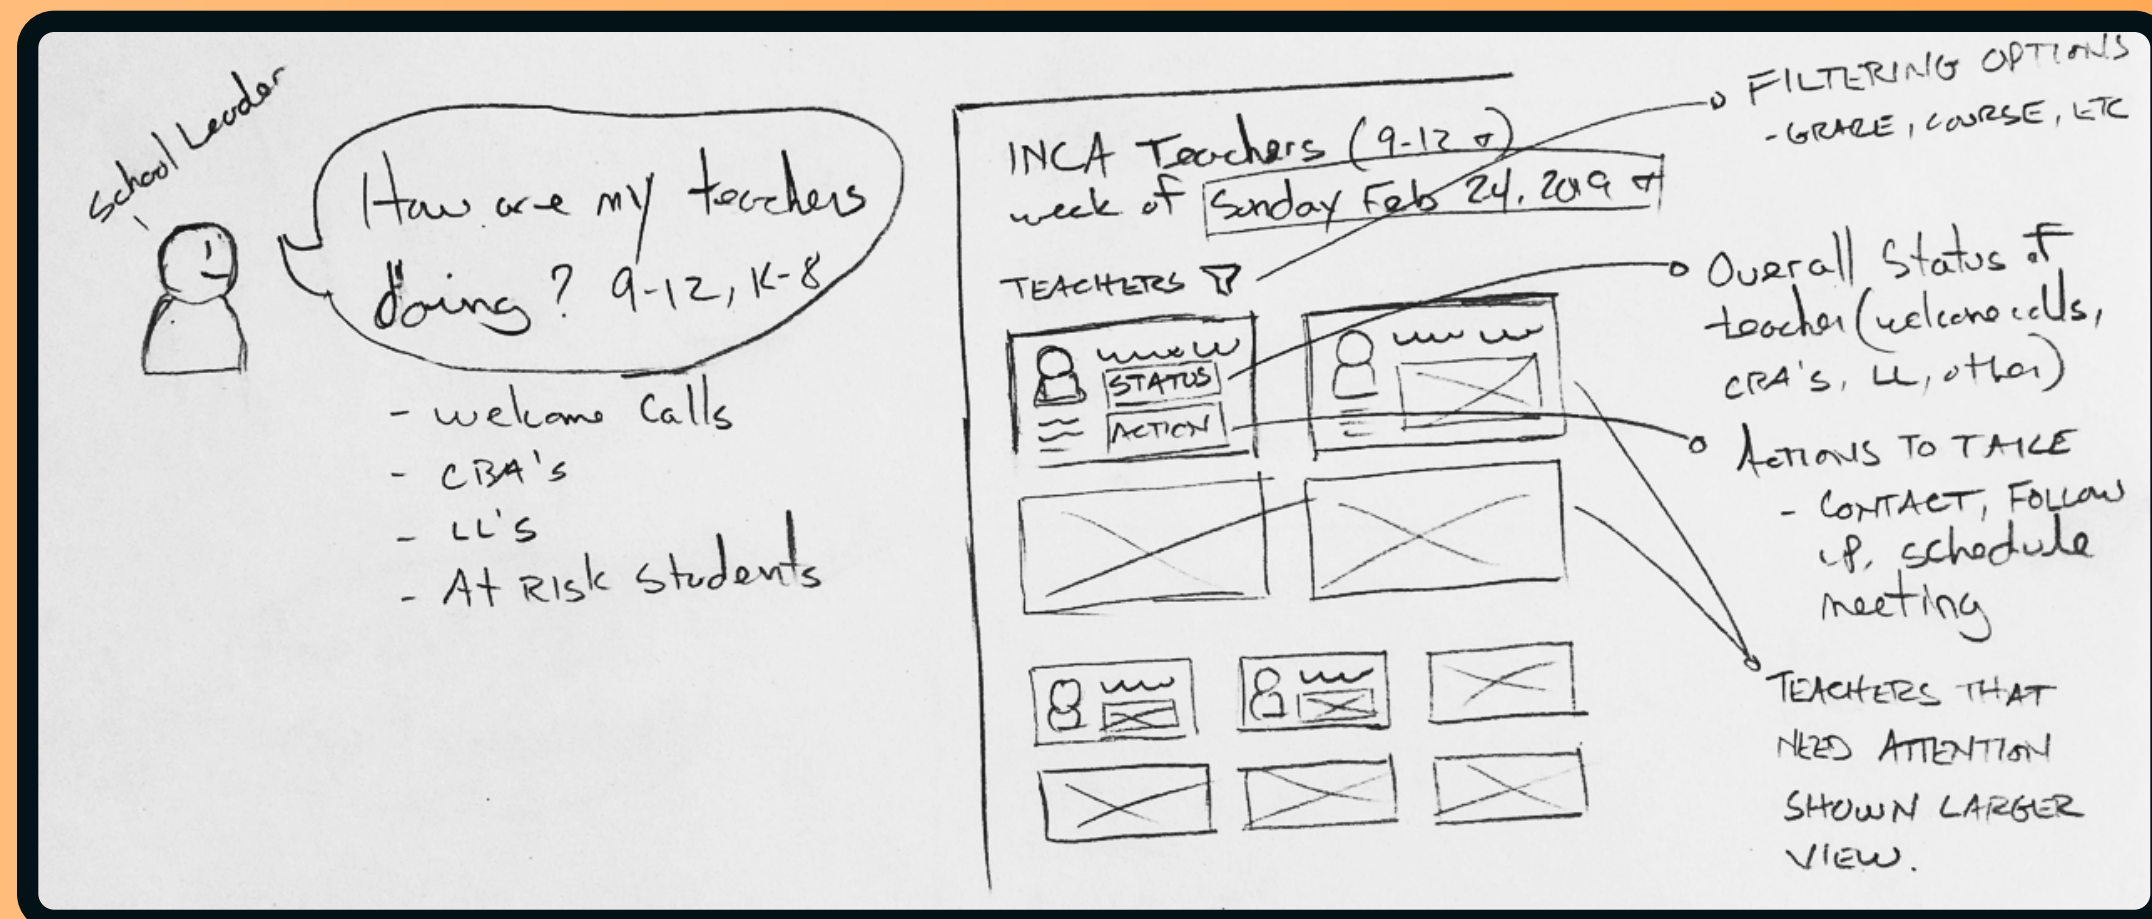 School Leader
How are my teachers
doing? 9-12, K-8
- welcome calls
- CBA's
- LL'S
- At Risk Students
INCA Teachers (9-12)
week of Sunday Feb 24, 2019
TEACHERS
STATUS
ACTION
FILTERING OPTIONS
- GRADE, COURSE, ETC
Overall Status of
teacher (welcome calls,
CBA's, LL, other)
ACTIONS TO TAKE
- CONTACT, FOLLOW
UP, schedule
meeting
TEACHERS THAT
NEED ATTENTION
SHOWN LARGER
VIEW.